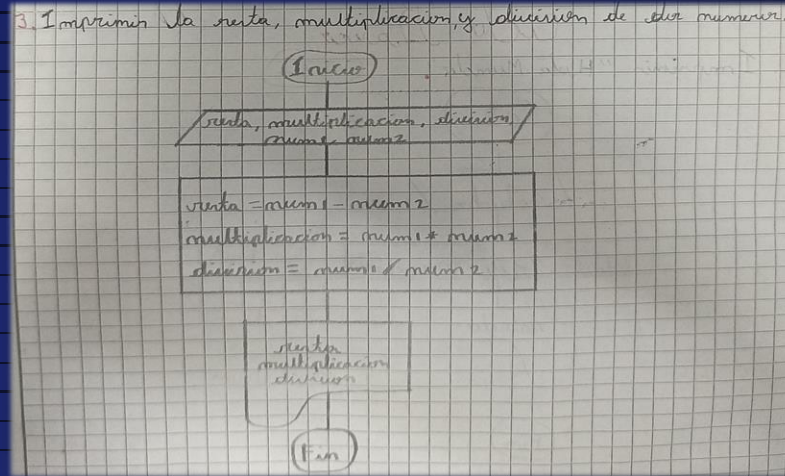 3. Imprimir la resta, multiplicacion, y division de dos numeros.
Inicio
resta, multiplicacion, division,
num1, num2
resta = num1 - num2
multiplicacion = num1 * num2
division = num1 / num2
resta
multiplicacion
division
Fin